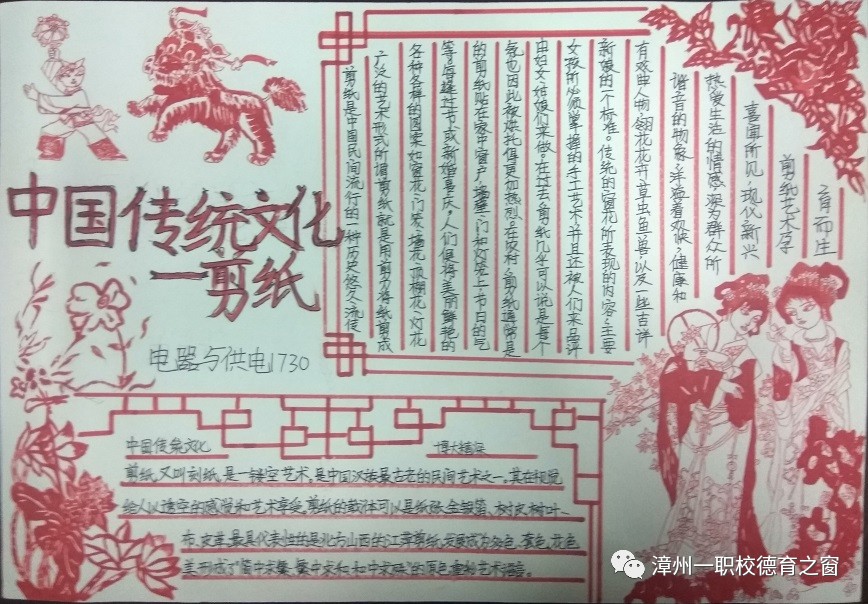 中国传统文化
一剪纸
电器与供电1730
剪纸是中国民间流行的一种历史悠久,流传
广泛的艺术形式,所谓剪纸就是用剪刀将纸剪成
各种各样的图案,如窗花、门笺、墙花、顶棚花、灯花
等。每逢过节或新婚喜庆,人们便将美丽鲜艳的
的剪纸贴在家中窗户、墙壁、门和灯笼上,节日的气
氛也因此被烘托得更加热烈。在农村,剪纸通常是
由妇女、姑娘们来做。在过去,剪纸几乎可以说是每个
女孩所必须掌握的手工艺术,并且还被人们来品评
新娘的一个标准。传统的窗花所表现的内容,主要
有戏曲人物,翎花花卉,草虫鱼兽,以及一些吉祥
谐音的物象,洋溢着欢快,健康和
热爱生活的情感,深为群众所
喜闻所见,现代新兴
剪纸艺术孕
育而生
中国传统文化 博大精深
剪纸,又叫刻纸,是一镂空艺术,是中国汉族最古老的民间艺术之一。其在视觉
给人以透空的感觉和艺术享受。剪纸的载体可以是纸张、金银箔、树皮、树叶、
布、皮革,最具代表性的是北方山西的剪纸,发展成为多色、套色、花色
美,形成了“简中求繁、繁中求和、和中求”的艺术语言。
漳州一职校德育之窗